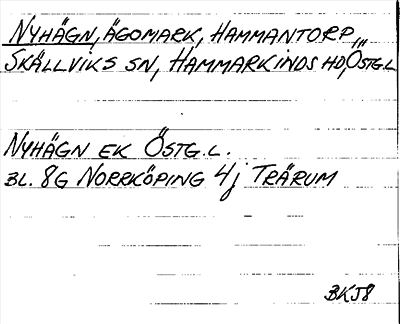 NYHÄGN, ÄGOMARK, HAMMANTORP,,,
SKÄLLVIKS SN, HAMMARKINDS HD, ÖSTG.L
NYHÄGN EK ÖSTG.L.
BL. 8G NORRKÖPING 4j TRÄRUM
BKJ8